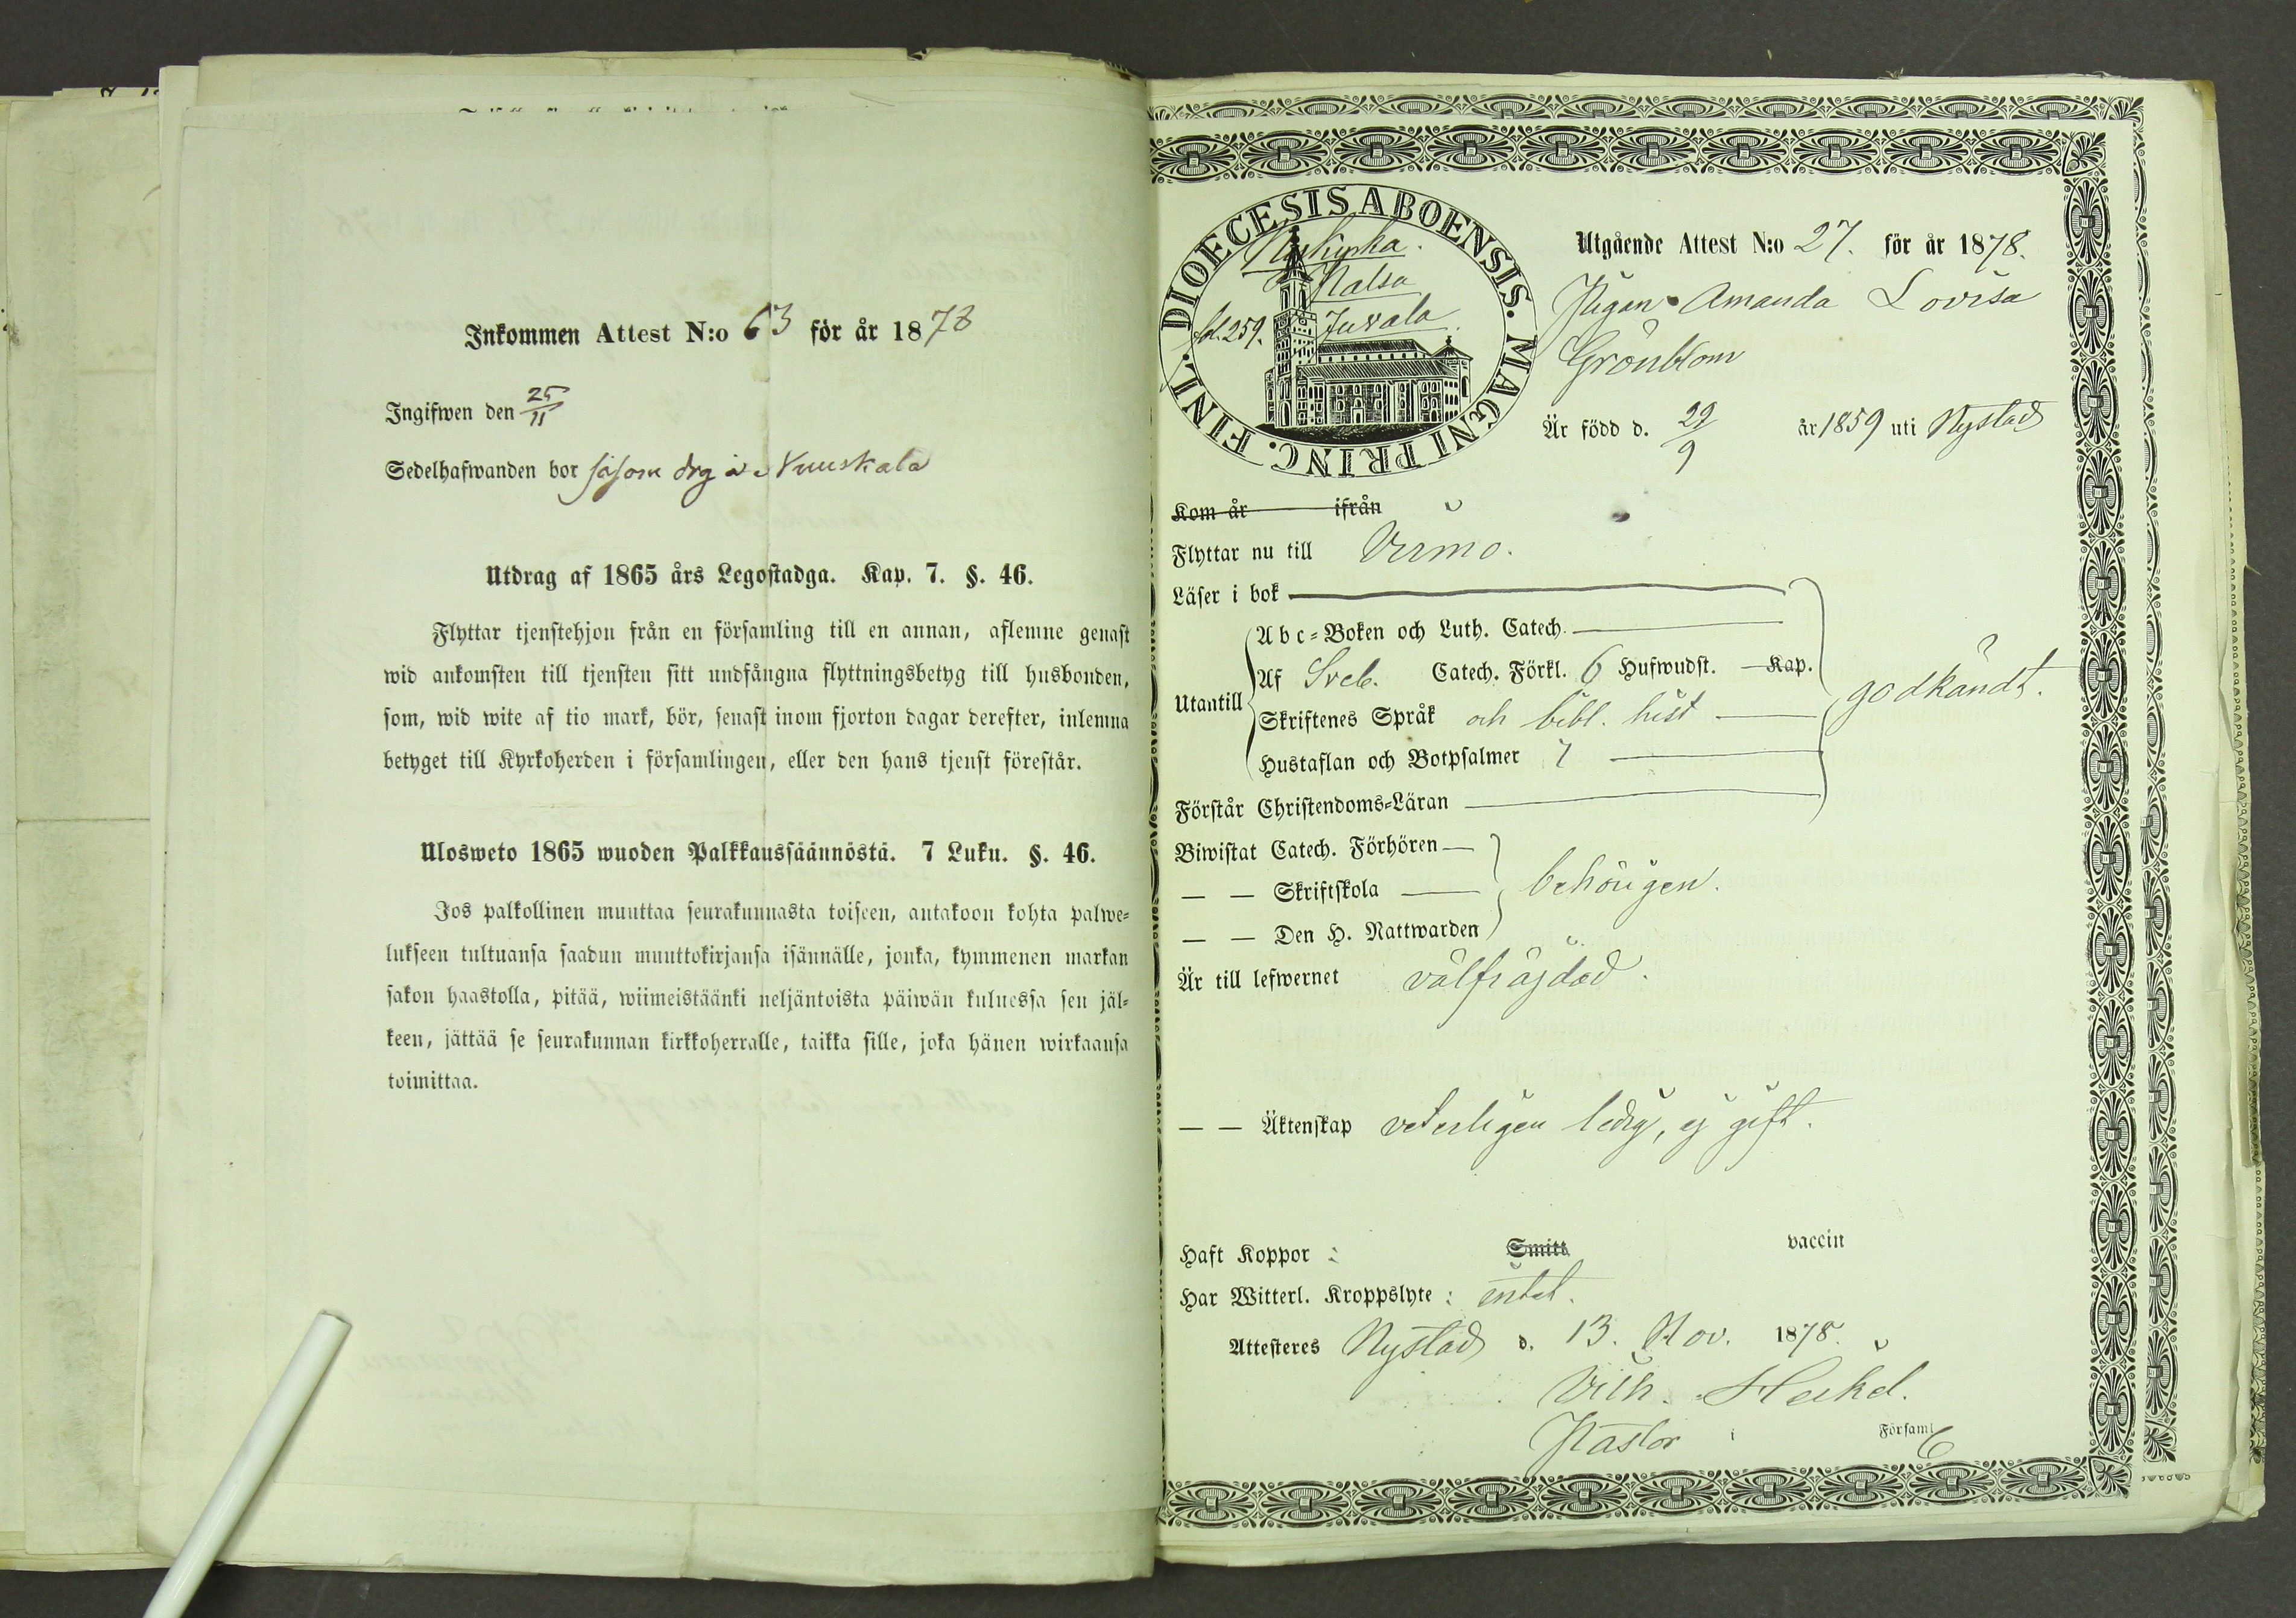 Inkommen Attest N:o 63 för år 1878
Ingifwen den 25/11
Sedelhafwanden bor såsom drg å Nuuskala
Utdrag af 1865 års Legostadga. Kap. 7. §. 46.
Flyttar tjenstehjon från en församling till en annan, aflemne genast
wid ankomsten till tjensten sitt undfångna flyttningsbetyg till husbonden,
som, wid wite af tio mark, bör, senast inom fjorton dagar derefter, inlemna
betyget till Kyrkoherden i församlingen, eller den hans tjenst förestår.
Ulosweto 1865 wuoden Palkkaussäännöstä. 7 Luku. §. 46.
Jos palkollinen muuttaa seurakunnasta toiseen, antakoon kohta palwe=
lukseen tultuansa saadun muuttokirjansa isännälle, jonka, kymmenen markan
sakon haastolla, pitää, wiimeistäänki neljäntoista päiwän kuluessa sen jäl=
keen, jättää se seurakunnan kirkkoherralle, taikka sille, joka hänen wirkaansa
toimittaa.
DIOECESIS ABOENSIS. MAGNI PRINC. FINL.
Nykyrka.
Kalsa
fol. 259. Juvala.
Utgående Attest N:o 27. för år 1878.
Pigan Amanda Lovisa
Grönblom
Är född d. 29/9 år 1859 uti Nystad
Kom år ifrån
Flyttar nu till Virmo.
Läser i bok
Utantill
Abc=Boken och Luth. Catech.
Af Sveb. Catech. Förkl. 6 Hufwudst. Kap.
Skriftenes Språk och bibl. hist
Hustaflan och Botpsalmer 7
godkändt.
Förstår Christendoms=Läran
Biwistat Catech. Förhören
— — Skriftskola
— — Den H. Nattwarden
behörigen.
Är till lefwernet välfräjdad.
— — Äktenskap veterligen ledig, ej gift.
Haft Koppor : Smitt vaccin
Har Witterl. Kroppslyte : intet.
Attesteres Nystad d. 13. Nov. 1878.
Vilh. Heikel.
Pastor i Församl